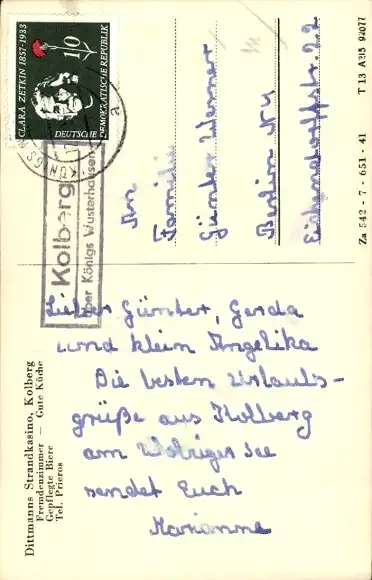 CLARA ZETKIN 1857-1933
10
DEUTSCHE
DEMOKRATISCHE REPUBLIK
KÖNIGS
a
Kolberg
über Königs Wusterhausen
An
Familie
Günter Werner
Berlin N 4
Eichendorffstr. 22
Lieber Günter, Gerda
und klein Angelika
Die besten Urlaubs-
grüße aus Kolberg
am Wolziger See
sendet Euch
Marianne
Dittmanns Strandkasino, Kolberg
Fremdenzimmer — Gute Küche
Gepflegte Biere
Tel. Prieros
Za 542 - 7 - 651 - 41 T 13 A 215 92077